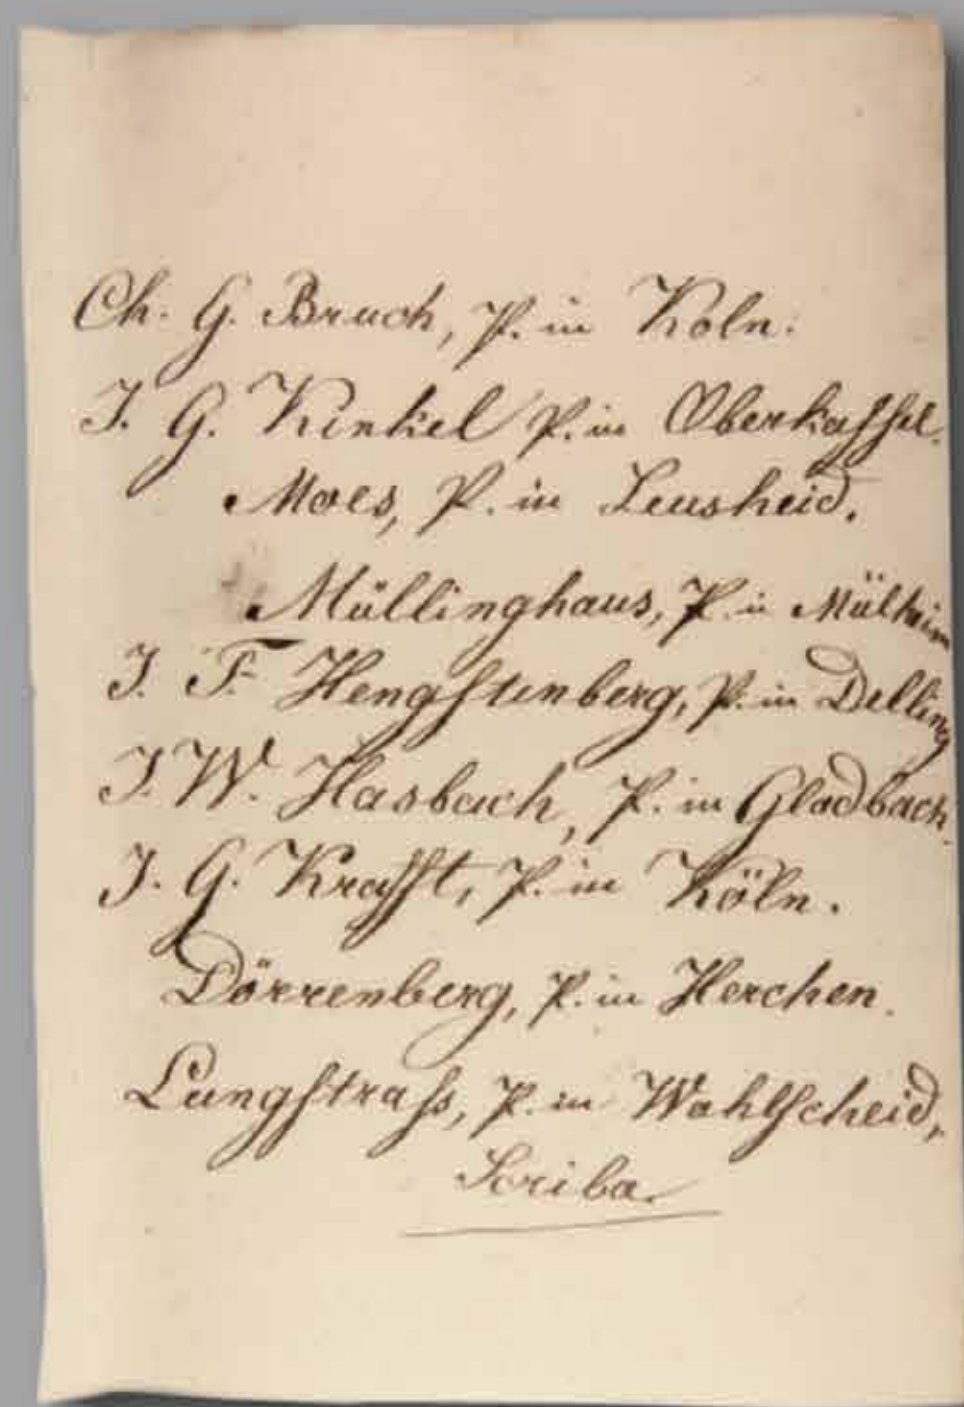 Ch. G. Bruch, P. in Köln.
J. G. Kinkel P. in Oberkaſsel.
Moes, P. in Leusheid.
Müllinghaus, P. in Mülheim
J. F. Hengſtenberg, P. in Delling
J. W. Hasbach, P. in Gladbach.
J. G. Krafft, P. in Köln.
Dörrenberg, P. in Herchen.
Lungſtraſs, P. in Wahlſcheid,
Scriba.